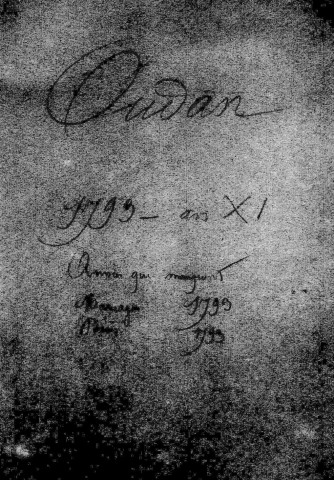 Oudan
1793 - an XI
Années qui manquent
Mariages 1793
Décès 1793